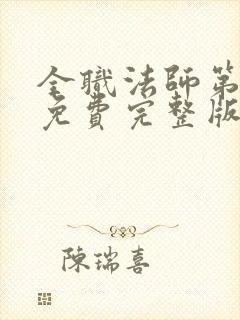 全職法師第
免費完整版
陳瑞喜